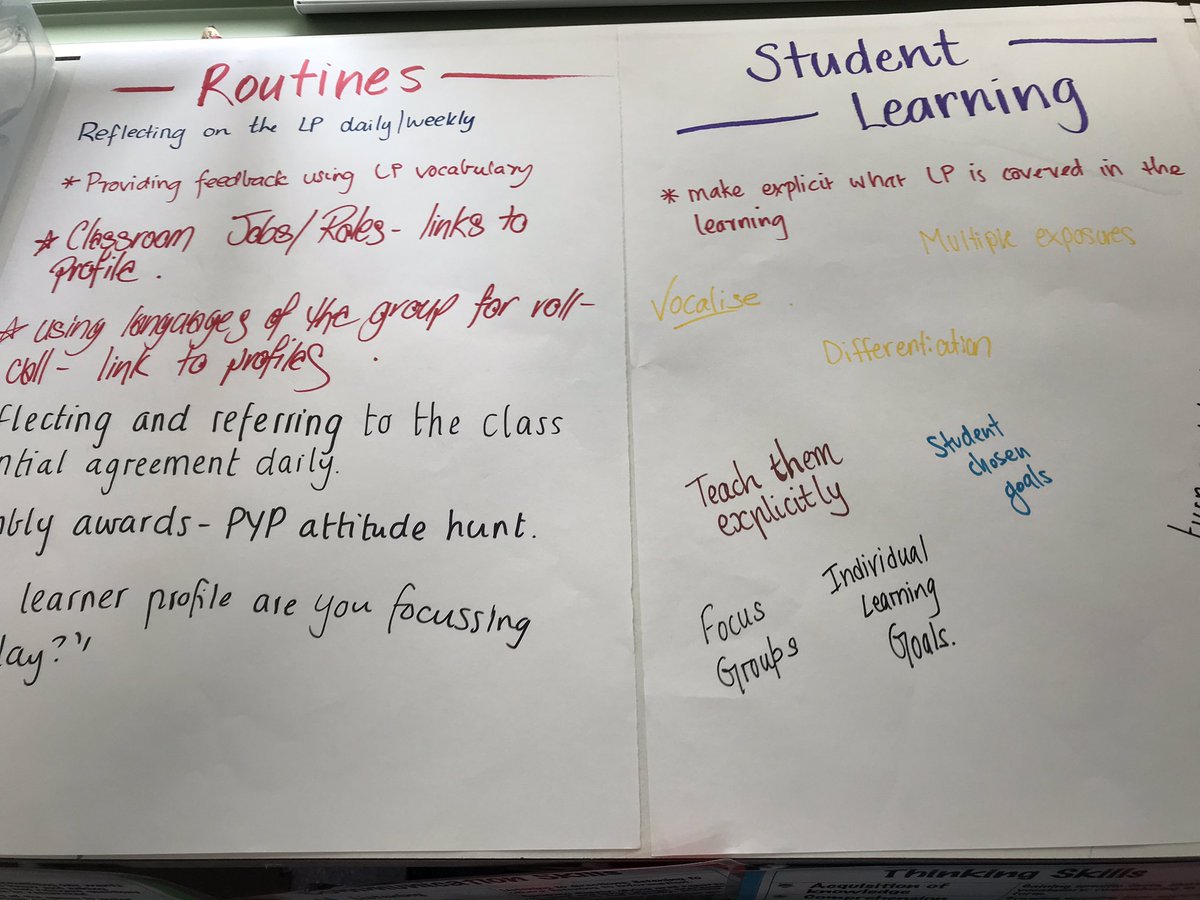 Routines
Reflecting on the LP daily/weekly
* Providing feedback using LP vocabulary
* Classroom Jobs/Roles - links to
profile.
* using languages of the group for roll-
call - link to profiles.
flecting and referring to the class
ntial agreement daily.
bly awards - PYP attitude hunt.
learner profile are you focussing
day?"
Student
Learning
* make explicit what LP is covered in the
learning
Multiple exposures
Vocalise
Differentiation
Teach them
explicitly
Student
chosen
goals
Focus
Groups
Individual
Learning
Goals.
Thinking Skills
Acquisition of
knowledge
Comprehension